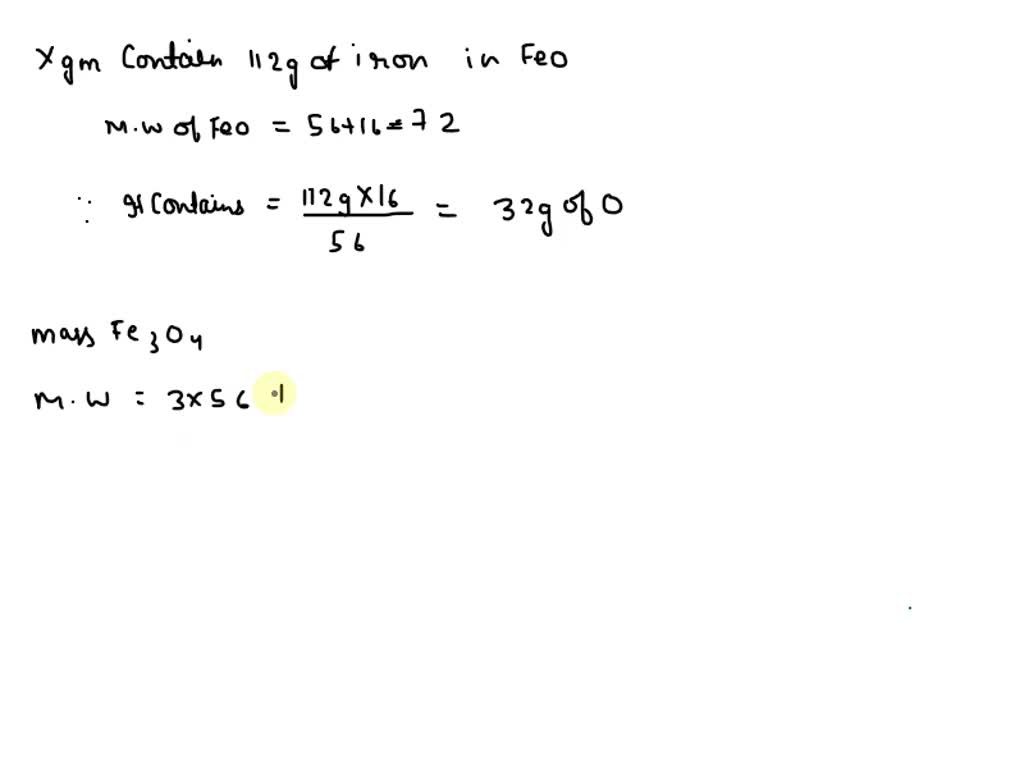 x gm Contain 112g of iron in FeO
M.W of FeO = 56+16 = 72
∵ It Contains = 112g×16 / 56 = 32g of O
mass Fe3O4
M.W = 3×56